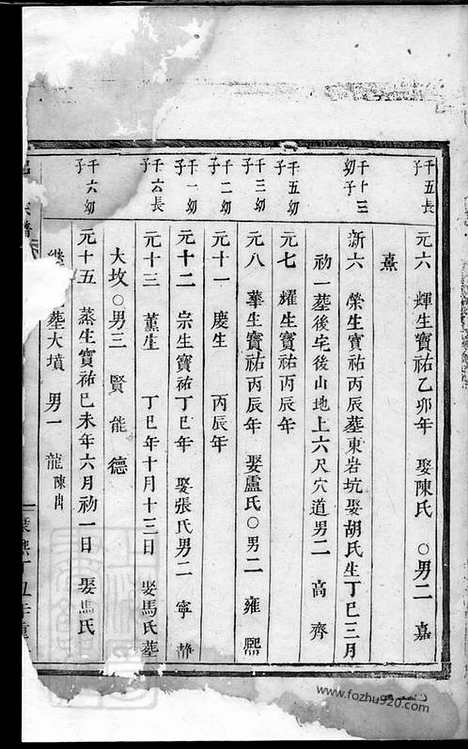 千五長子
元六 輝生寶祐乙卯年 娶陳氏 ○男二 嘉
熹
千十三幼子
新六 榮生寶祐丙辰年墓東岩坑娶胡氏生丁巳三月
初一墓後宅後山地上六尺穴道男二 高 齊
千五幼子
元七 耀生寶祐丙辰年
千三幼子
元八 華生寶祐丙辰年 娶盧氏○男二 雍 熙
千二幼子
元十一 慶生 丙辰年
千一幼子
元十二 宗生寶祐丁巳年 娶張氏男二 寧 靜
千六長子
元十三 薫生 丁巳年十月十三日 娶馬氏墓
大坟○男三 賢 能 德
千六幼子
元十五 蒸生寶祐己未年六月初一日 娶馬氏
繼 墓大墳 男一 龍
www.fozhu920.com